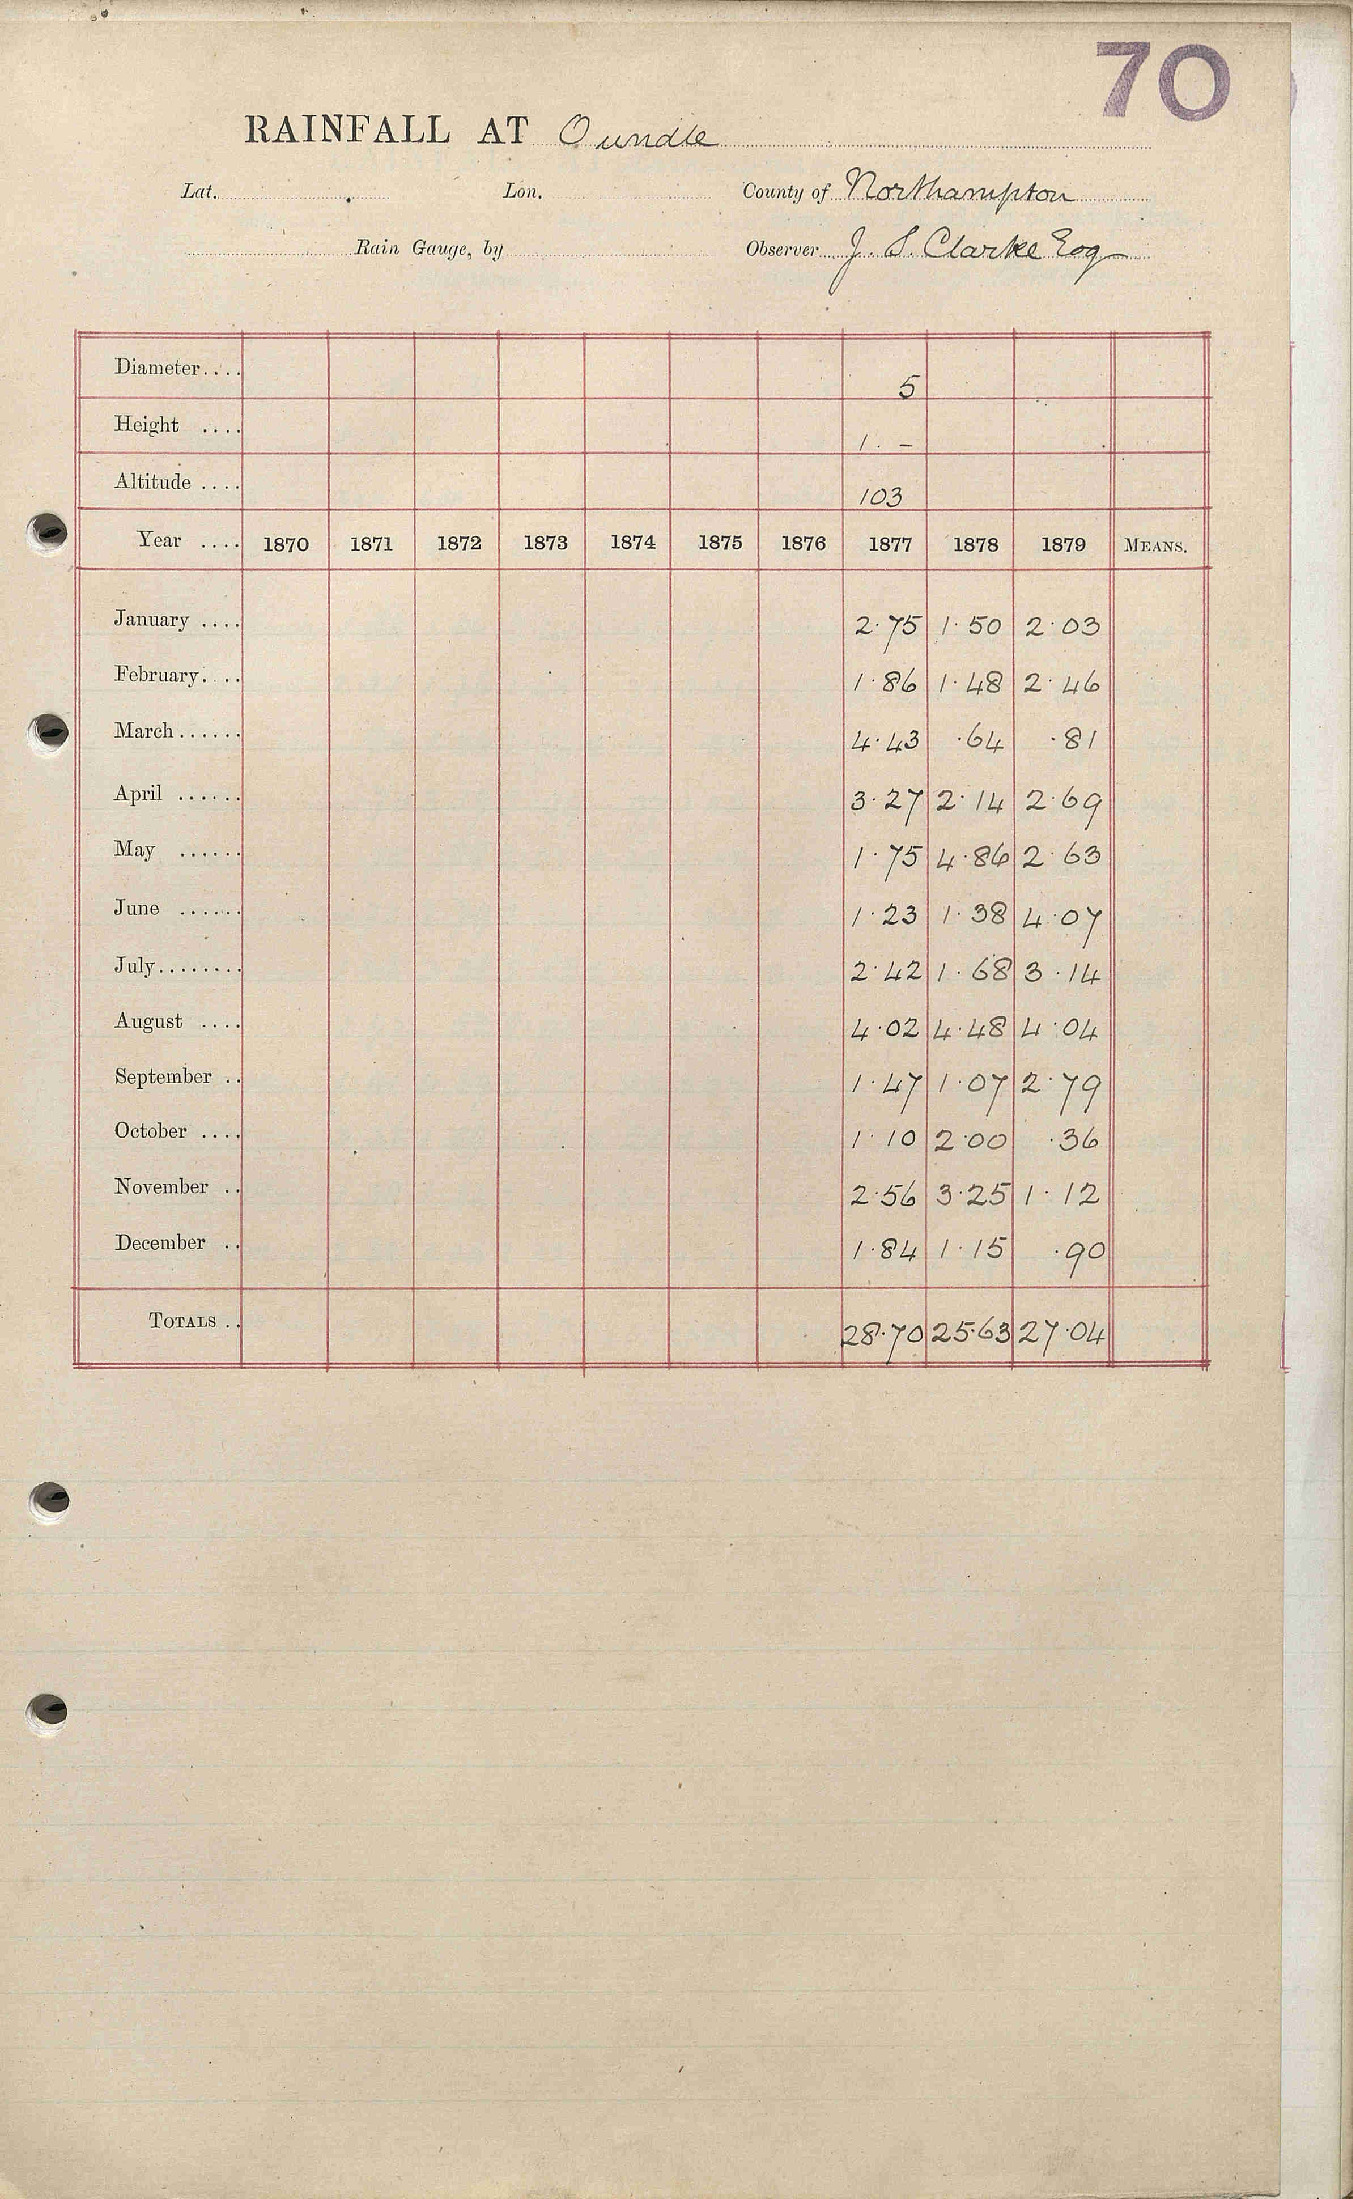 70
RAINFALL AT Oundle
Lat. Lon. County of Northampton
Rain Gauge, by Observer J. S. Clarke Esq
Diameter.... 5
Height .... 1. -
Altitude .... 103
Year .... 1870 1871 1872 1873 1874 1875 1876 1877 1878 1879 MEANS.
January .... 2.75 1.50 2.03
February.... 1.86 1.48 2.46
March...... 4.43 .64 .81
April ...... 3.27 2.14 2.69
May ...... 1.75 4.86 2.63
June ...... 1.23 1.38 4.07
July........ 2.42 1.68 3.14
August .... 4.02 4.48 4.04
September .. 1.47 1.07 2.79
October .... 1.10 2.00 .36
November .. 2.56 3.25 1.12
December .. 1.84 1.15 .90
TOTALS .. 28.70 25.63 27.04